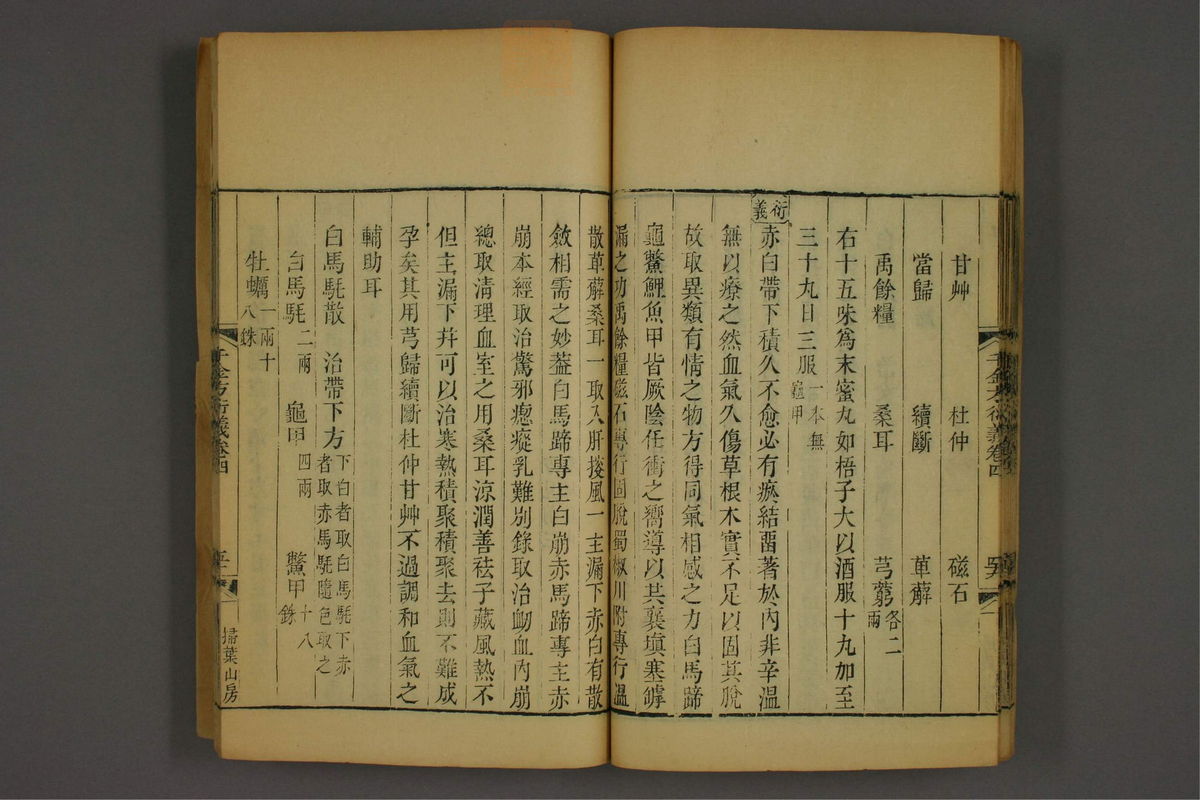 甘艸 杜仲 磁石
當歸 續斷 萆薢
禹餘糧 桑耳 芎藭各二兩
右十五味爲末蜜丸如梧子大以酒服十丸加至
三十丸日三服一本無龜甲
衍義
赤白帶下積久不愈必有瘀結畱著於內非辛溫
無以療之然血氣久傷草根木實不足以固其脫
故取異類有情之物方得同氣相感之力白馬蹄
龜鱉鯉魚甲皆厥陰任衝之嚮導以其襄塡塞罅
漏之功禹餘糧磁石專行固脫蜀椒川附專行溫
散萆薢桑耳一取入肝搜風一主漏下赤白有散
斂相需之妙葢白馬蹄專主白崩赤馬蹄專主赤
崩本經取治驚邪瘛瘲乳難別錄取治衂血內崩
總取清理血室之用桑耳涼潤善祛子藏風熱不
但主漏下幷可以治寒熱積聚積聚去則不難成
孕矣其用芎歸續斷杜仲甘艸不過調和血氣之
輔助耳
白馬駞散 治帶下方下白者取白馬駞下赤者取赤馬駞隨色取之
白馬駞二兩 龜甲四兩 鱉甲十八銖
牡蠣一兩十八銖
千金方衍義卷四
掃葉山房
千金方衍義卷四